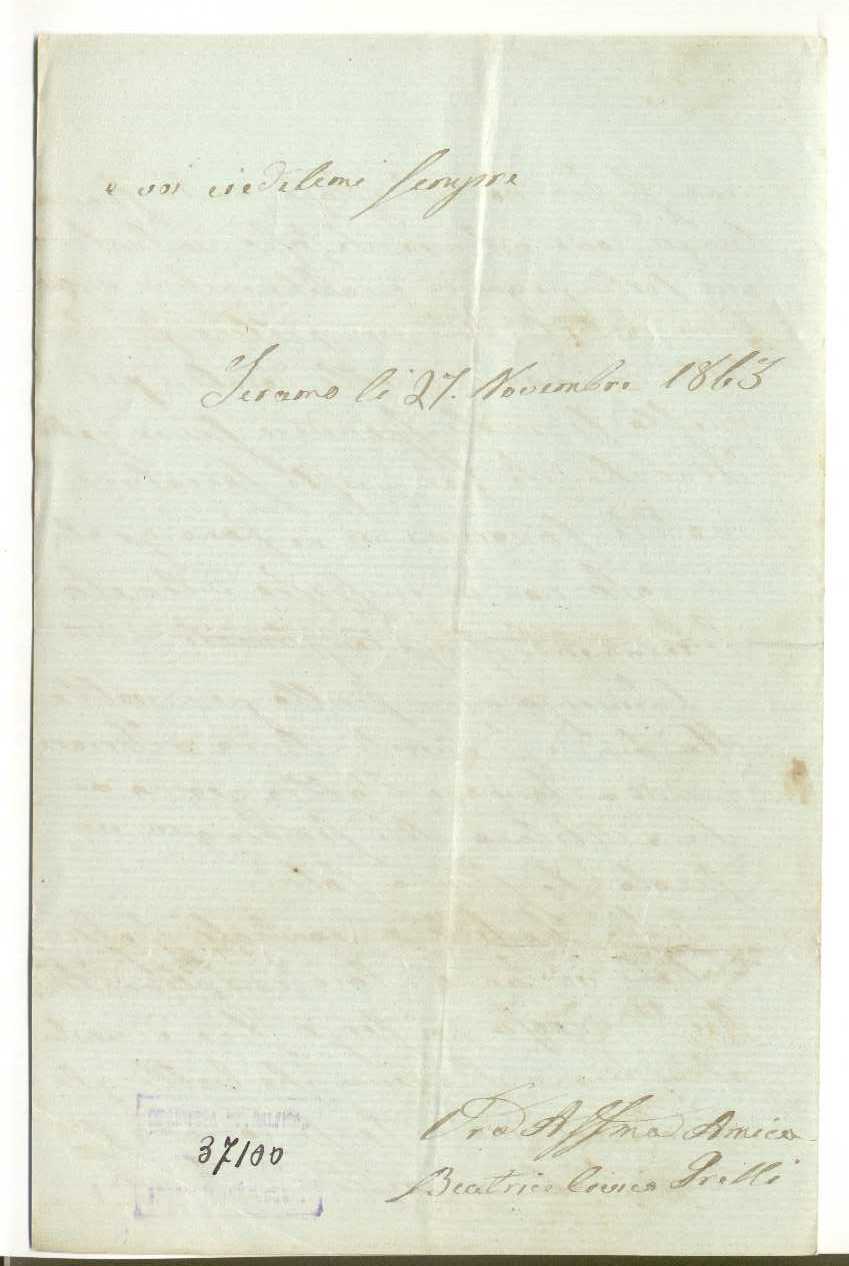 e voi credetemi sempre
Teramo li 27. Novembre 1863
Vra Affma Amica
Beatrice Trilli
37100